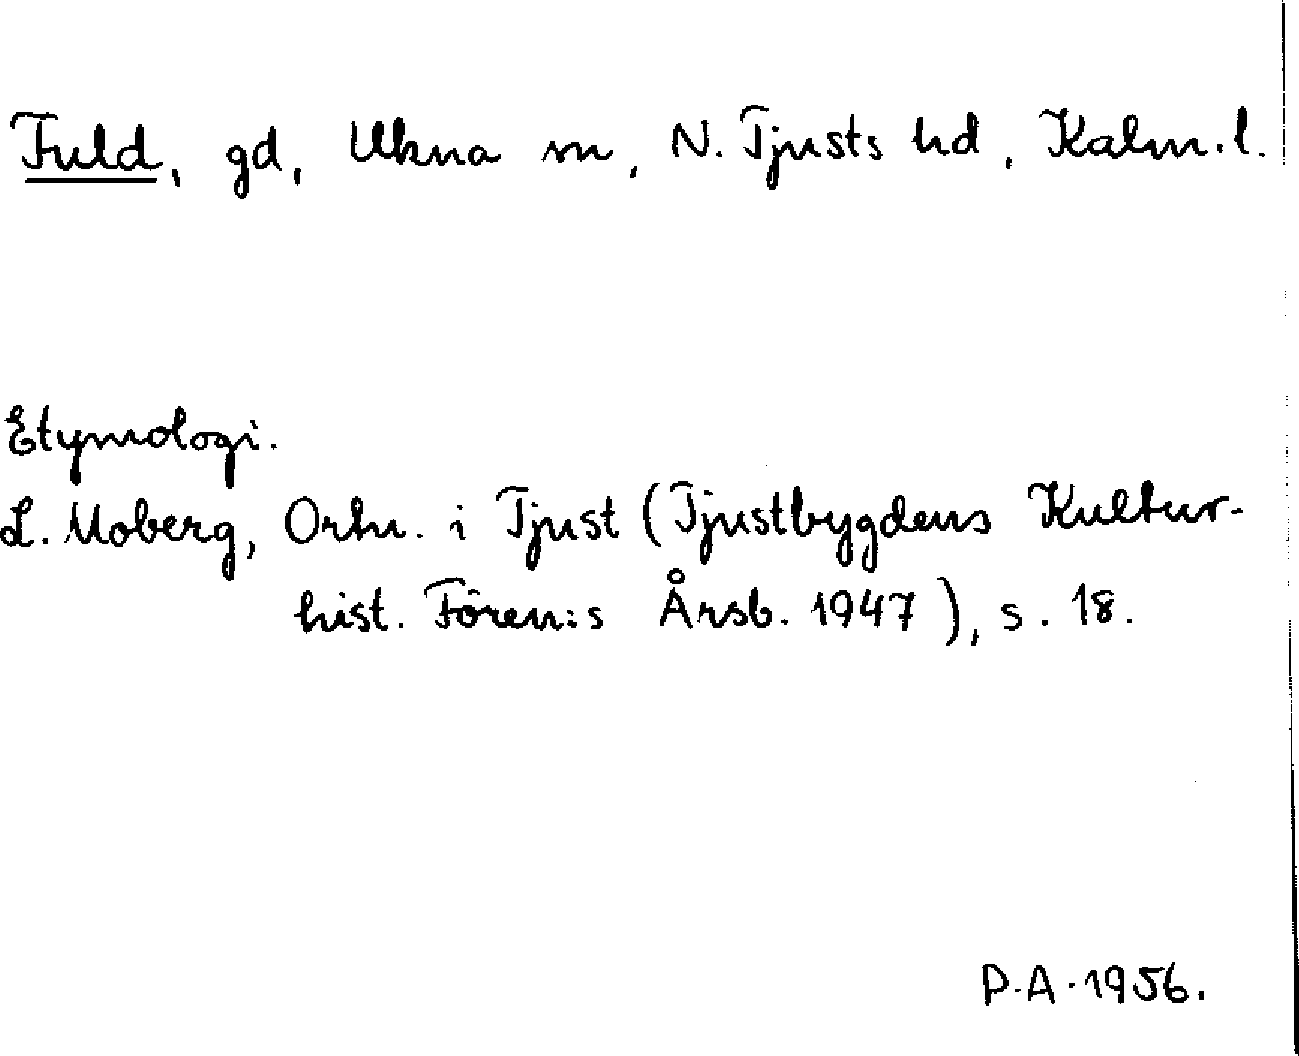 Fuld, gd, Ukna sn, N. Tjusts hd, Kalm. l.
Etymologi.
L. Moberg, Ortn. i Tjust (Tjustbygdens Kultur-
hist. Fören:s Årsb. 1947), s. 18.
P.A. 1956.